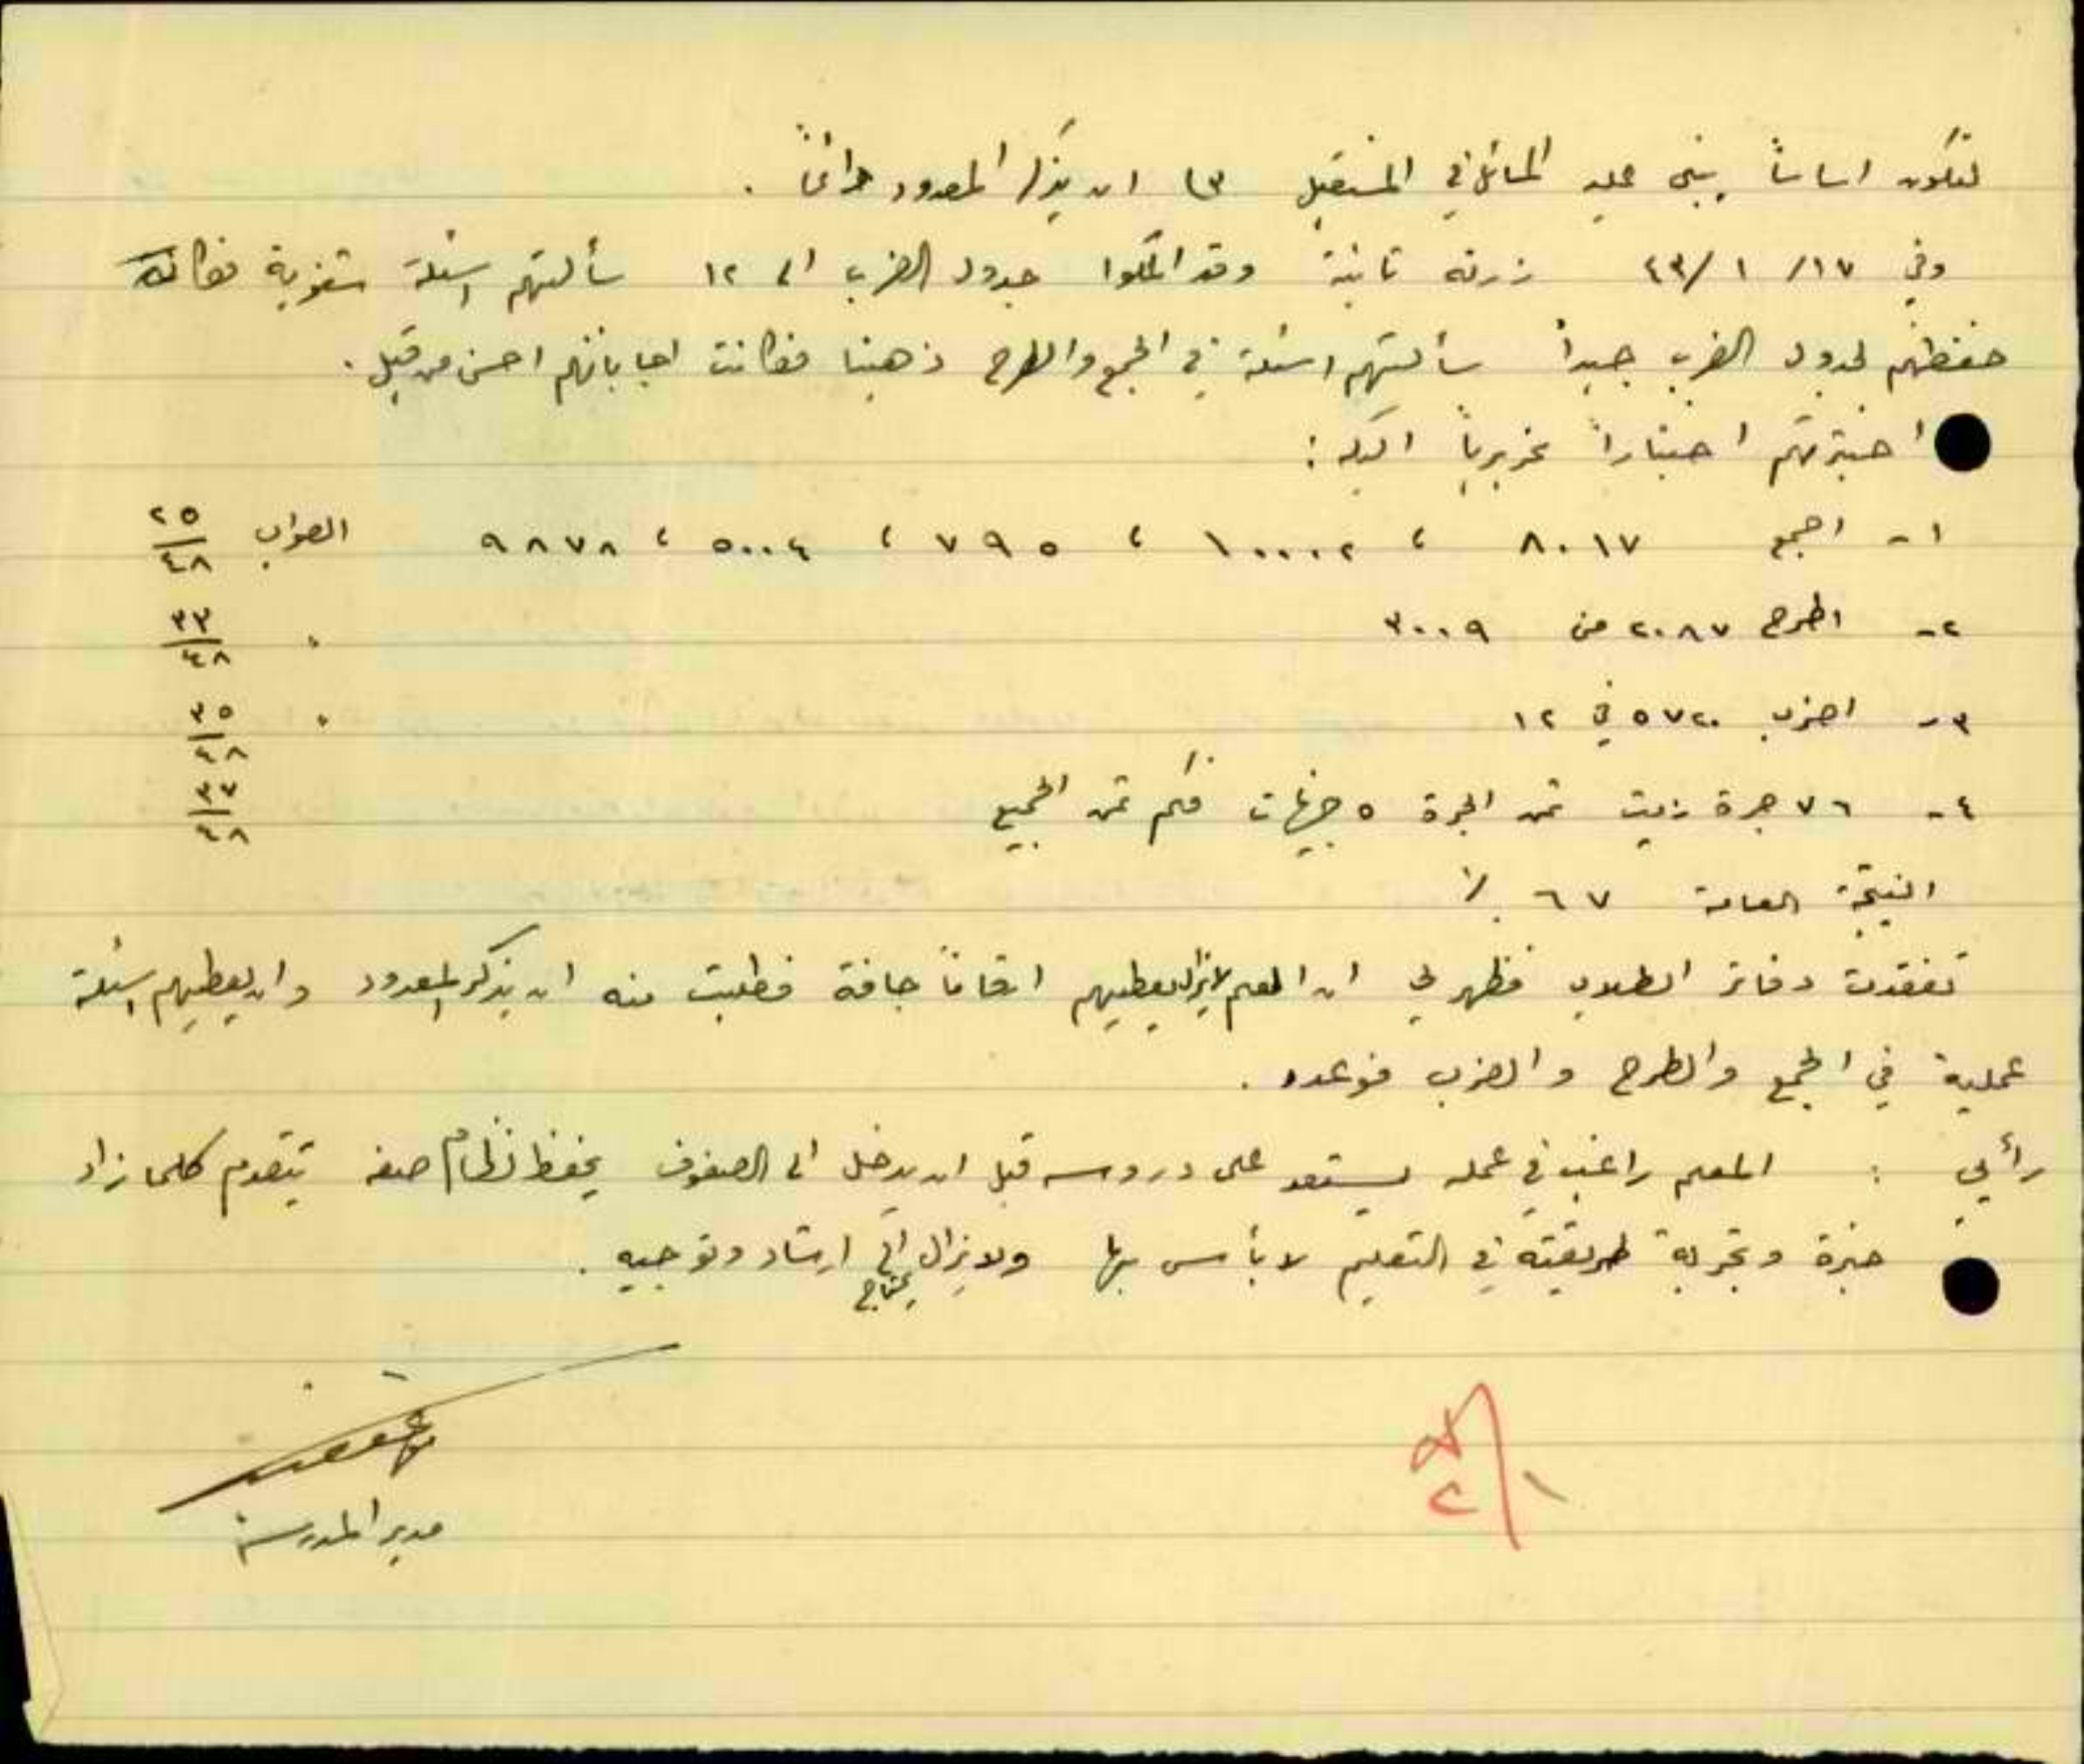 لتكون اساساً يبنى عليه المسائل في المستقبل ٣) ان يذكر المعدود دائماً .
وفي ١٧/ ١ /٤٣ زرته ثانية وقد اكملوا جدول الضرب الى ١٢ سألتهم اسئلة شفوية فكان
حفظهم لجدول الضرب جيداً سألتهم اسئلة في الجمع والطرح ذهنياً فكانت اجاباتهم احسن من قبل .
اختبرتهم اختباراً تحريرياً اليكه :
١- اجمع ٨٠١٧ ، ١٠٠٠٢ ، ٧٩٥ ، ٥٠٠٤ ، ٩٨٧٨ الصواب ٢٥/٤٨
٢- اطرح ٢٠٨٧ من ٣٠٠٩ " ٣٣/٤٨
٣- اضرب ٥٧٢٠ في ١٢ " ٣٥/٤٨
٤- ٧٦ جرة زيت ثمن الجرة ٥ جنيهات فكم ثمن الجميع ٣٤/٤٨
النتيجة العامة ٦٧ ٪
تفقدت دفاتر الطلاب فظهر لي ان المعلم لا يزال يعطيهم ارقاماً جافة فطلبت منه ان يذكر المعدود وان يعطيهم اسئلة
عملية في الجمع والطرح والضرب فوعد .
رأيي : المعلم راغب في عمله يستعد على دروسه قبل ان يدخل الى الصفوف يحفظ نظام صفه يتقدم كلما زاد
خبرة وتجربة طريقته في التعليم لا بأس بها ولا يزال يحتاج الى ارشاد وتوجيه .
مدير المدرسة